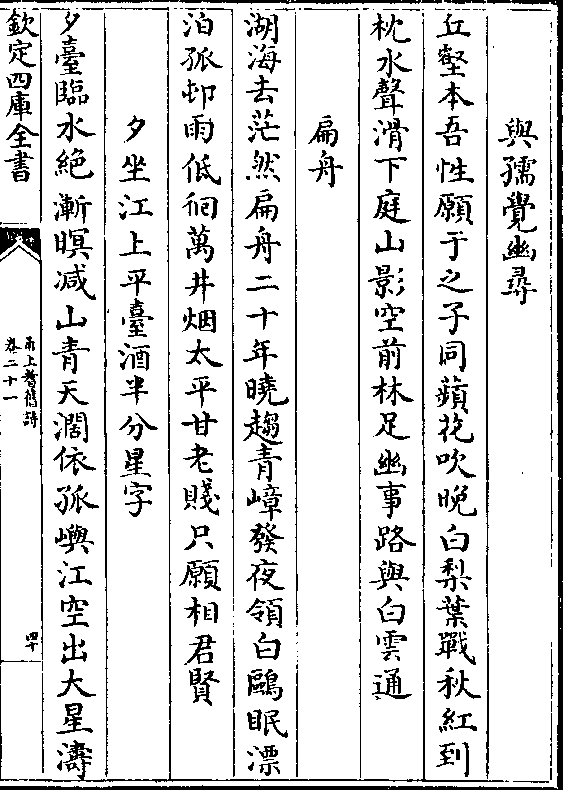 與孺覺幽尋
丘壑本吾性願于之子同蘋花吹晚白梨葉戰秋紅到
枕水聲滑下庭山影空前林足幽事路與白雲通
扁舟
湖海去茫然扁舟二十年曉趨青嶂發夜領白鷗眠漂
泊孤邨雨低徊萬井烟太平甘老賤只願相君賢
夕坐江上平臺酒半分星字
夕臺臨水絶漸暝减山青天濶依孤嶼江空出大星濤
欽定四庫全書
甬上耆舊詩
卷二十一
四十